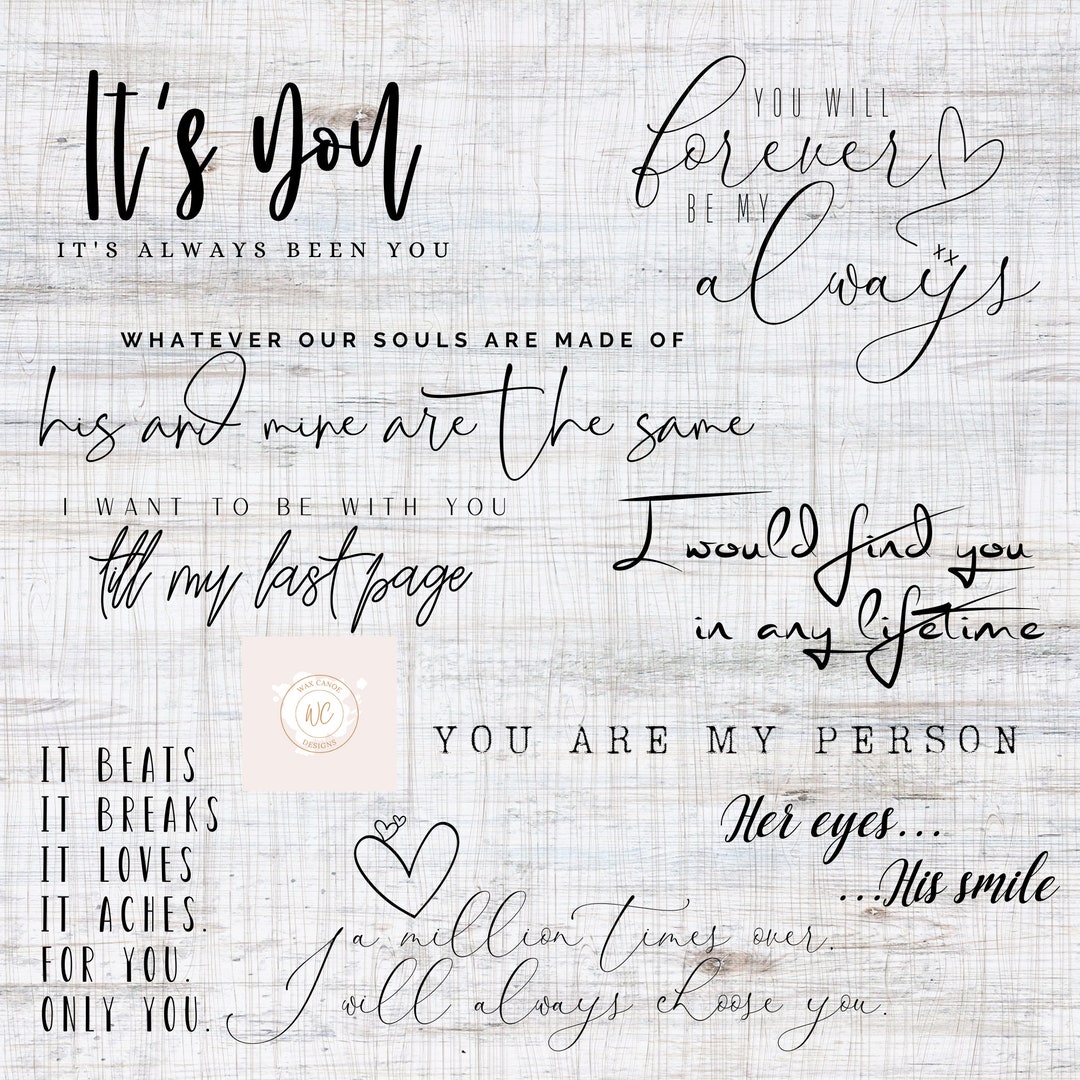 It's you
IT'S ALWAYS BEEN YOU
YOU WILL
forever
BE MY
always
xx
WHATEVER OUR SOULS ARE MADE OF
his and mine are the same
I WANT TO BE WITH YOU
till my last page
I would find you
in any lifetime
WAX CANOE
WC
DESIGNS
YOU ARE MY PERSON
IT BEATS
IT BREAKS
IT LOVES
IT ACHES.
FOR YOU.
ONLY YOU.
Her eyes...
...His smile
a million times over.
I will always choose you.